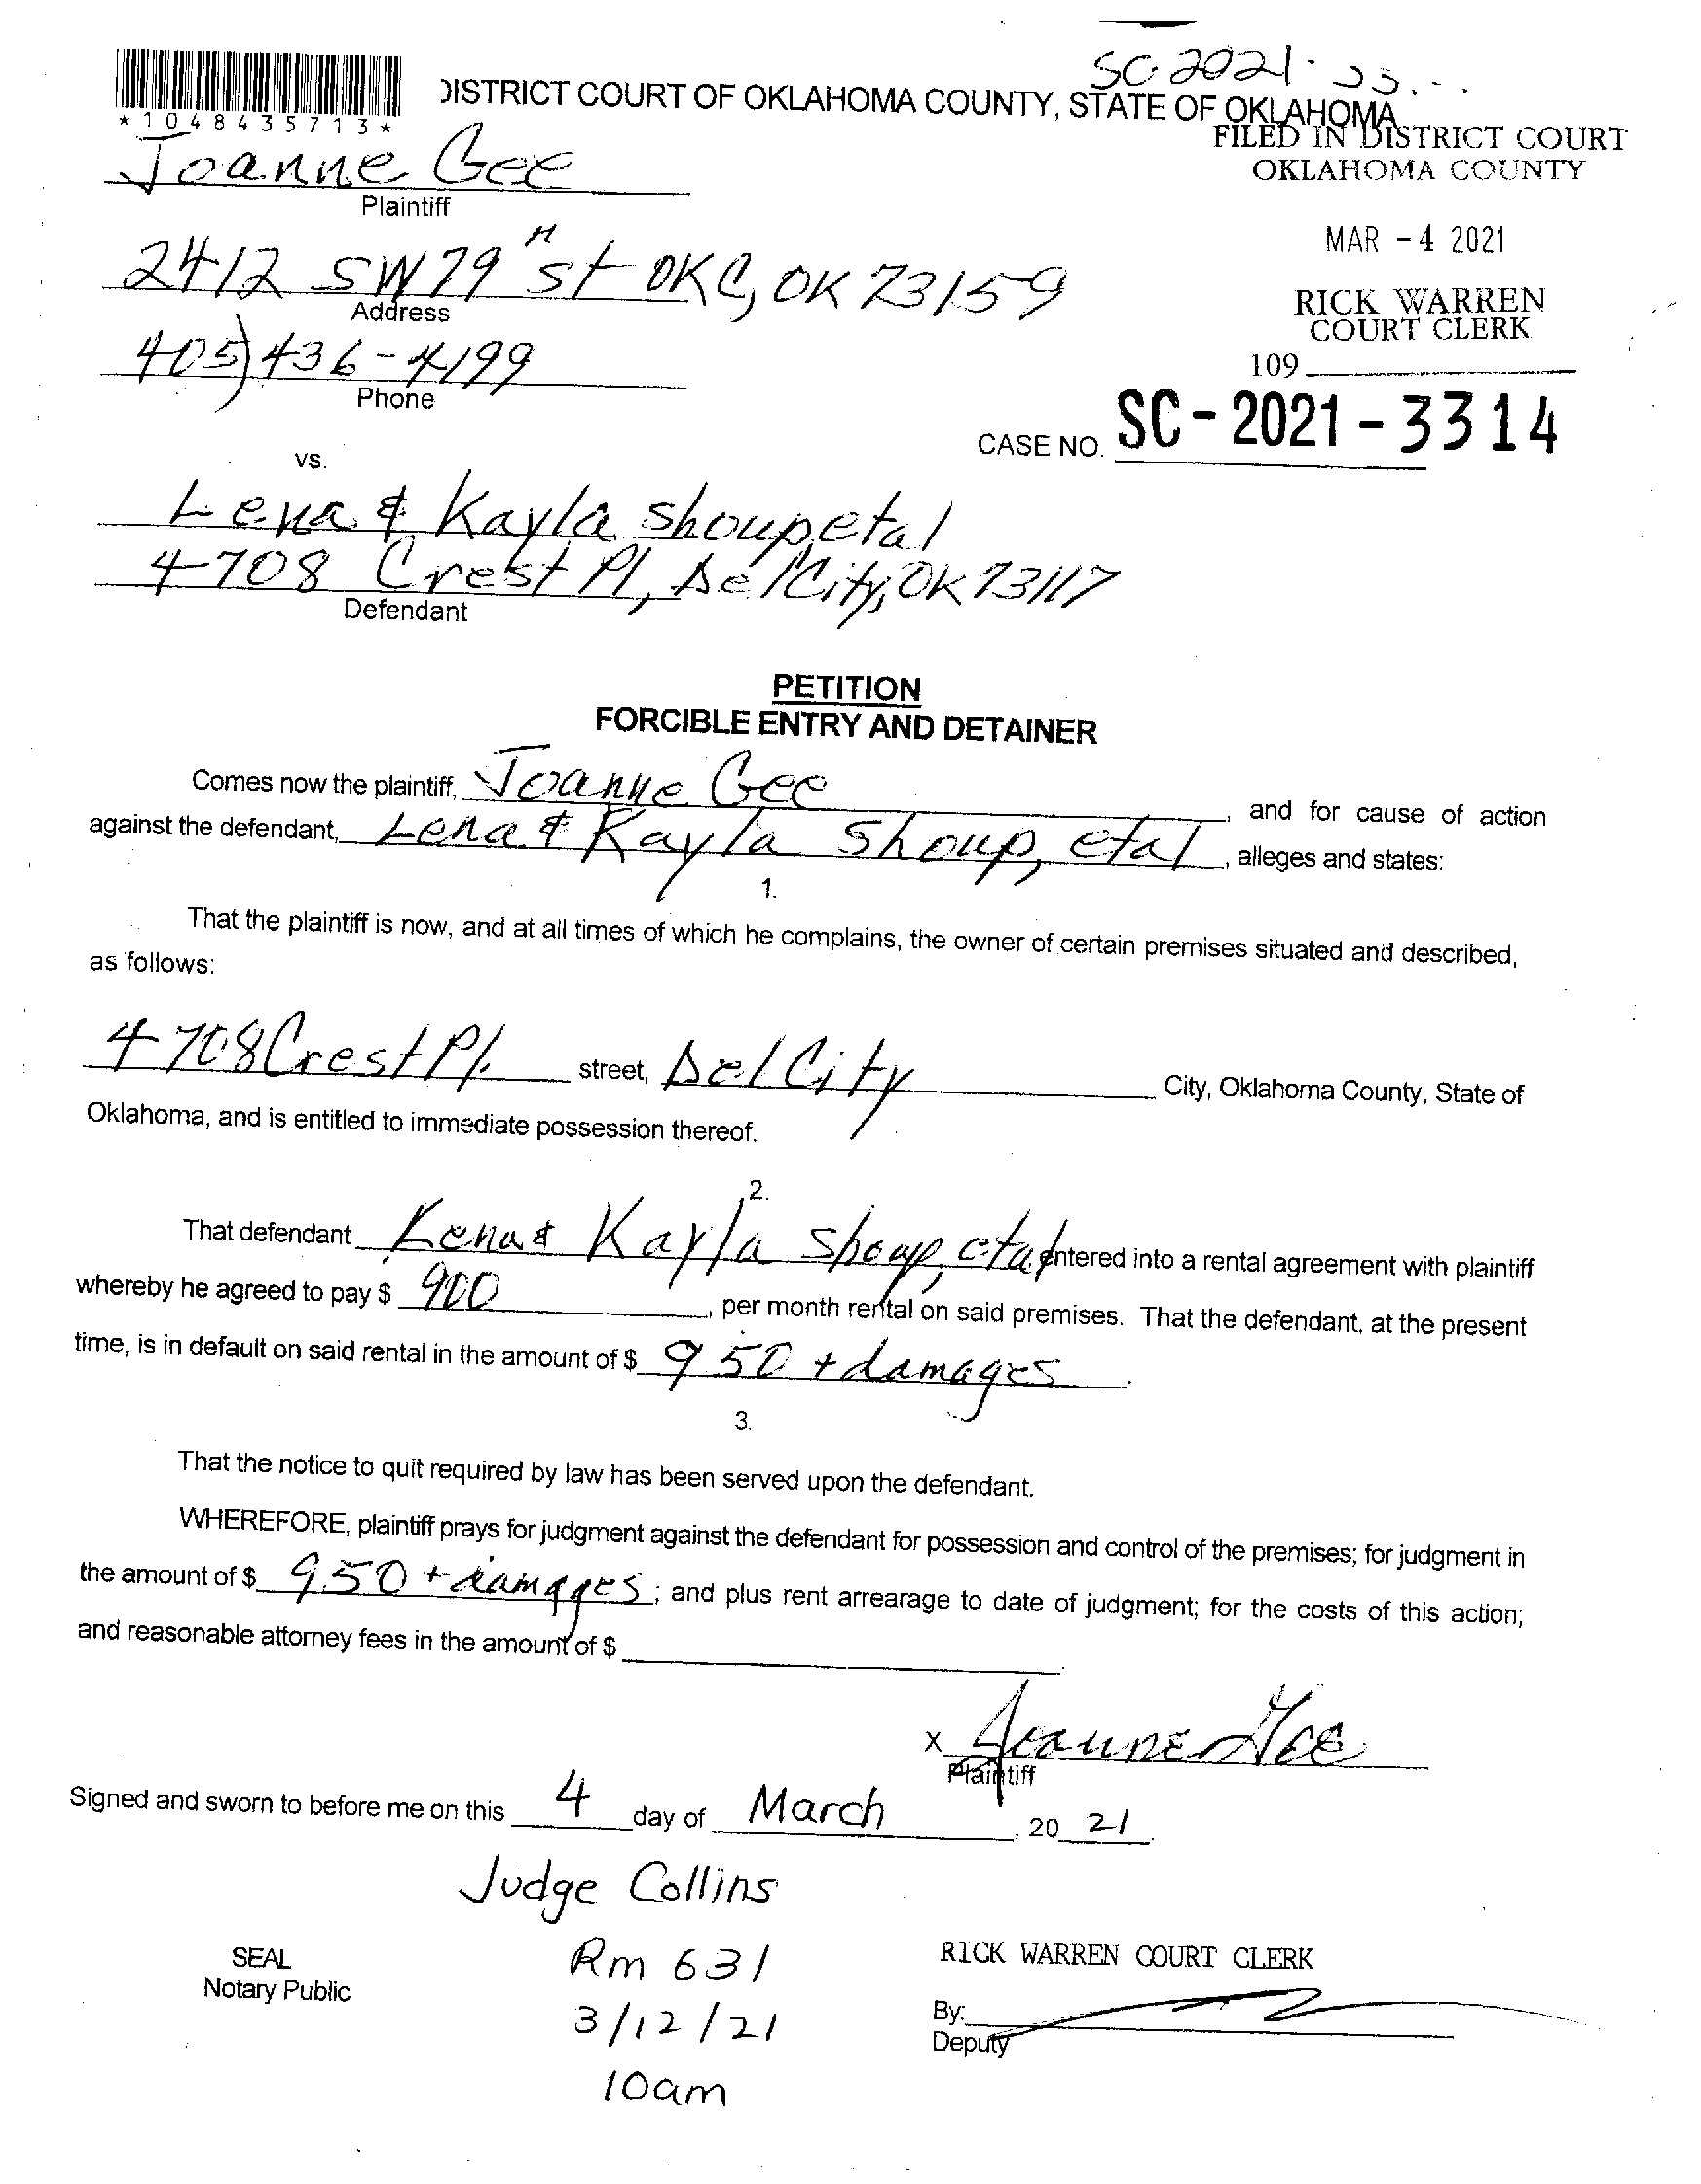 SC 2021
DISTRICT COURT OF OKLAHOMA COUNTY, STATE OF OKLAHOMA
*1048435713*
FILED IN DISTRICT COURT
OKLAHOMA COUNTY
Joanne Gee
Plaintiff
MAR -4 2021
2412 SW 79th St OKC, OK 73159
Address
RICK WARREN
COURT CLERK
405) 436-4199
Phone
109
CASE NO. SC-2021-3314
vs.
Lena & Kayla Shoup, etal
4708 Crest Pl, Del City, OK 73117
Defendant
PETITION
FORCIBLE ENTRY AND DETAINER
Comes now the plaintiff, Joanne Gee, and for cause of action
against the defendant, Lena & Kayla Shoup, etal, alleges and states:
1.
That the plaintiff is now, and at all times of which he complains, the owner of certain premises situated and described,
as follows:
4708 Crest Pl. street, Del City City, Oklahoma County, State of
Oklahoma, and is entitled to immediate possession thereof.
2.
That defendant Lena & Kayla Shoup, etal entered into a rental agreement with plaintiff
whereby he agreed to pay $ 900, per month rental on said premises. That the defendant, at the present
time, is in default on said rental in the amount of $ 950 + damages.
3.
That the notice to quit required by law has been served upon the defendant.
WHEREFORE, plaintiff prays for judgment against the defendant for possession and control of the premises; for judgment in
the amount of $ 950 + damages; and plus rent arrearage to date of judgment; for the costs of this action;
and reasonable attorney fees in the amount of $
x Joanne Gee
Plaintiff
Signed and sworn to before me on this 4 day of March, 20 21.
Judge Collins
SEAL
Notary Public
Rm 631
RICK WARREN COURT CLERK
3/12/21
By:
Deputy
10am